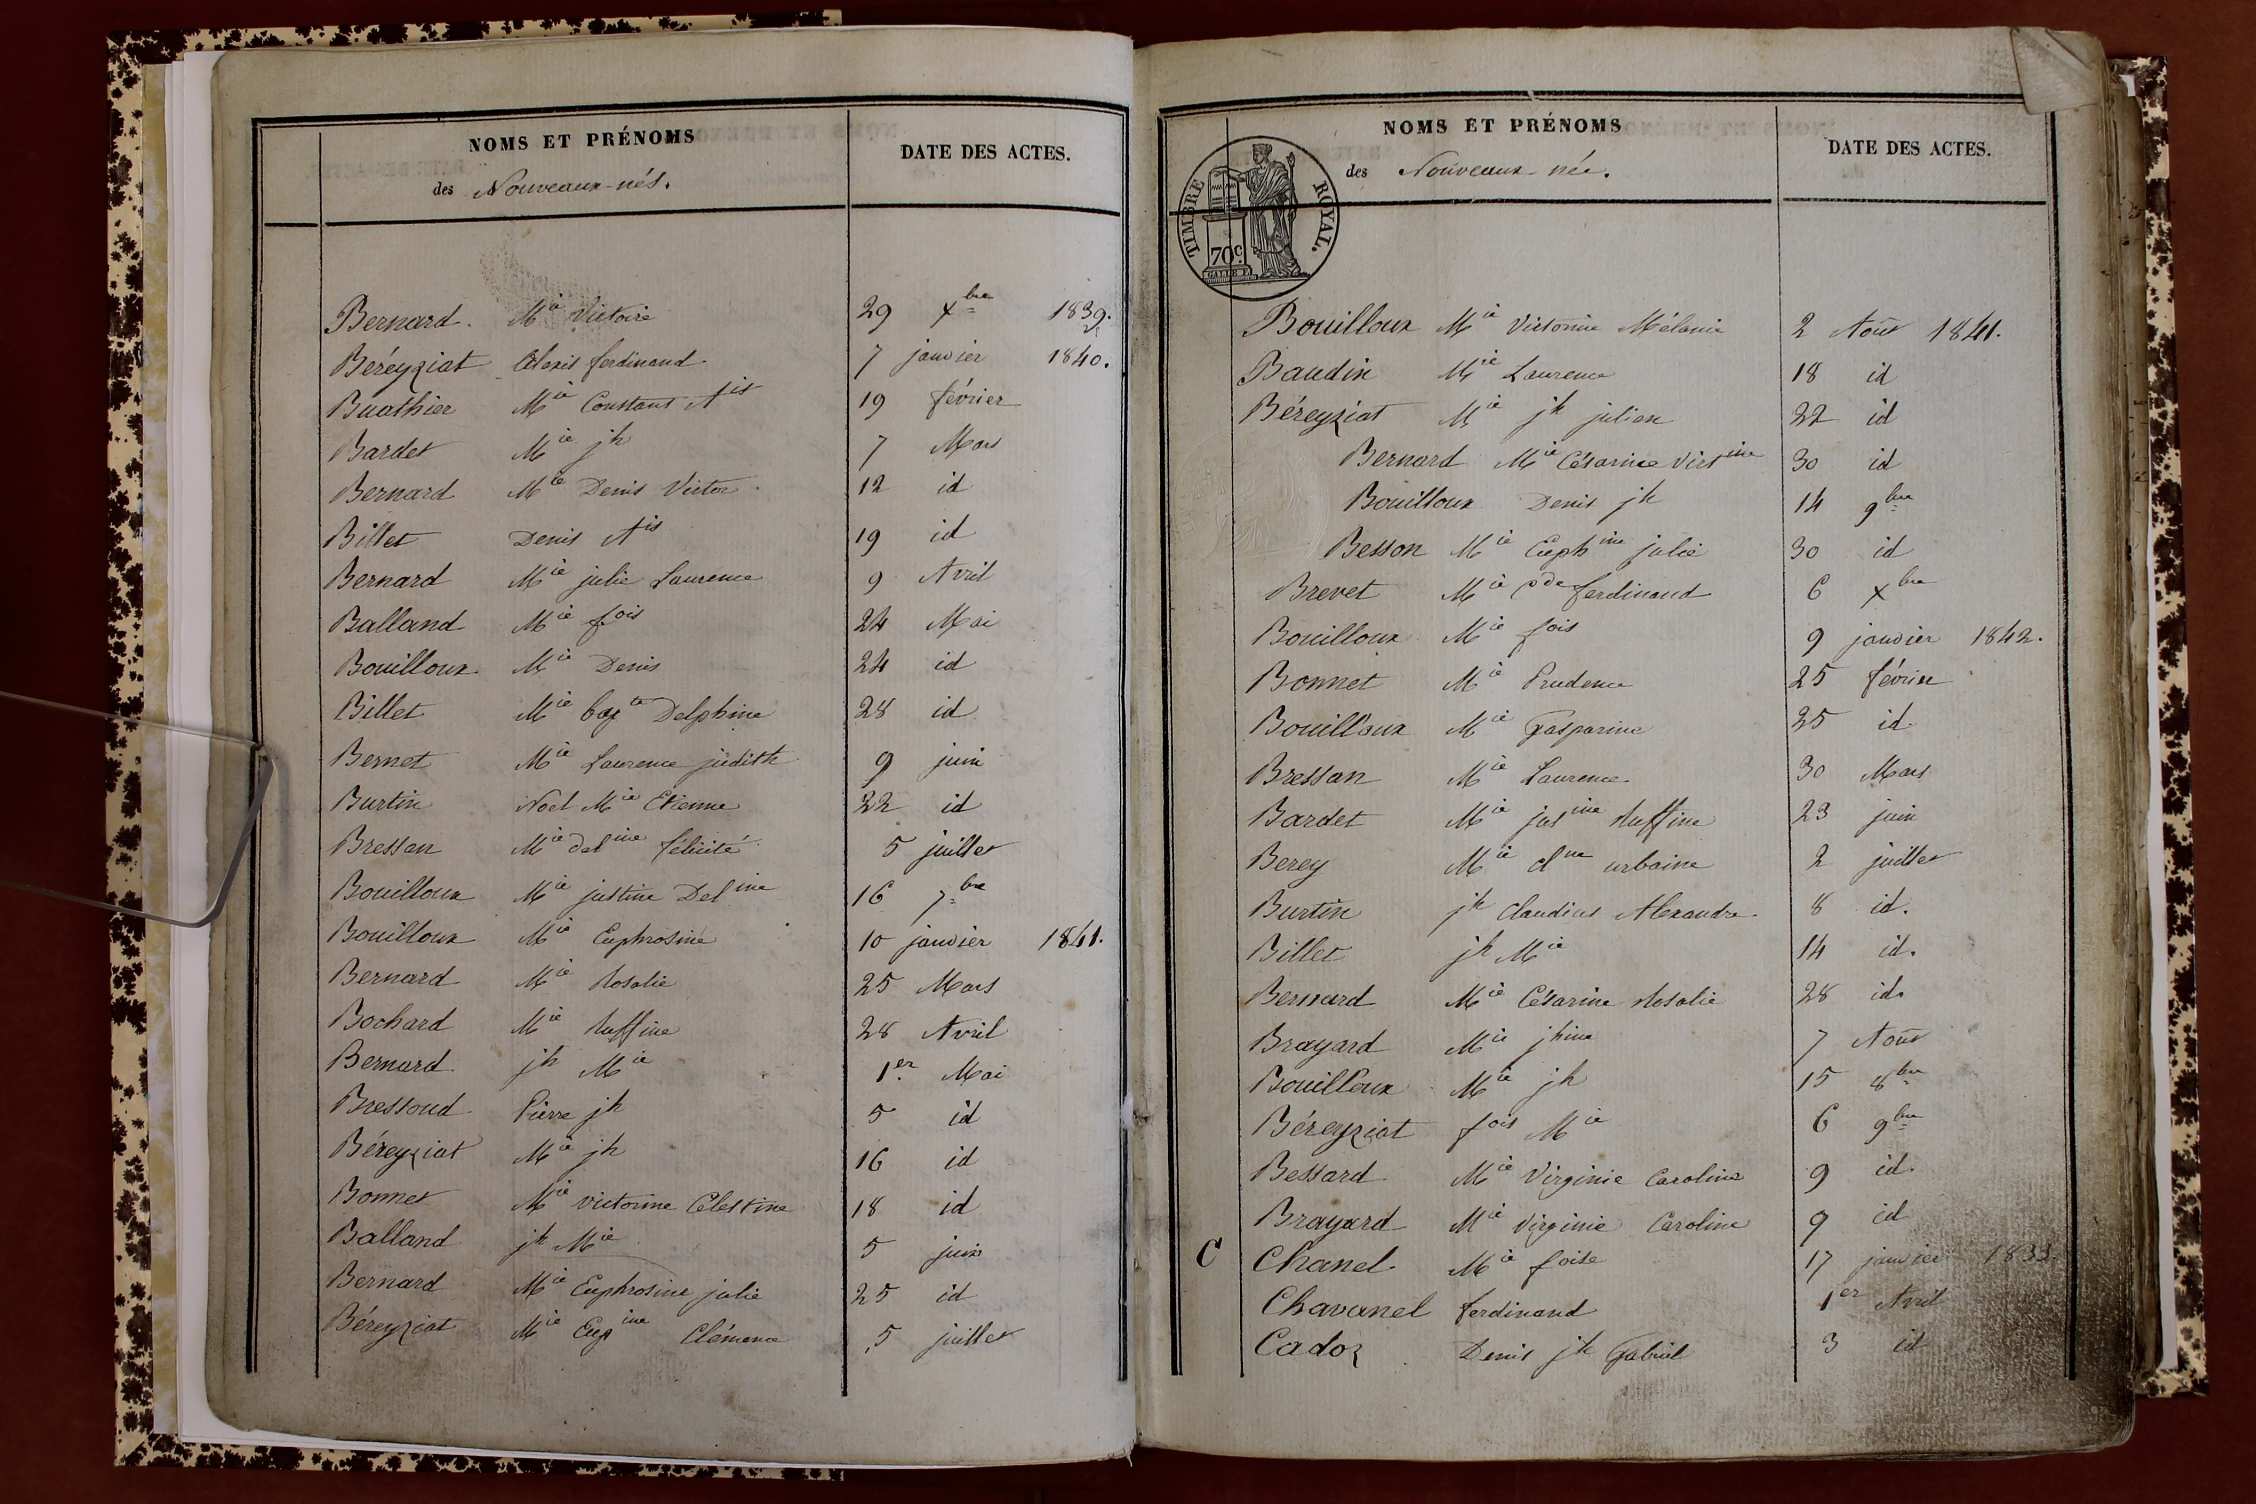 NOMS ET PRÉNOMS
des Nouveaux-nés.
DATE DES ACTES.
Bernard. Mie Victoire 29 xbre 1839.
Beréyziat Alexis ferdinand 7 janvier 1840.
Buathier Mie Constant Ais 19 février
Bardet Mie jh 7 Mars
Bernard Mie Denis Victor 12 id
Billet Denis Ais 19 id
Bernard Mie julie Laurence 9 Avril
Balland Mie fois 24 Mai
Bouilloux Mie Denis 24 id
Billet Mie Delphine 28 id
Bernet Mie Laurence judith 9 juin
Burtin Noël Mie Etienne 22 id
Bressan Mie deline félicité 5 juillet
Bouilloux Mie justine Deline 16 7bre
Bouilloux Mie Euphrosine 10 janvier 1841.
Bernard Mie Rosalie 25 Mars
Bochard Mie Ruffine 28 Avril
Bernard jh Mie 1er Mai
Bressoud Pierre jh 5 id
Béreyziat Mie jh 16 id
Bonnet Mie victorine Célestine 18 id
Balland jh Mie 5 juin
Bernard Mie Euphrosine julie 25 id
Béreyziat Mie Eugine Clémence 5 juillet
NOMS ET PRÉNOMS
des Nouveaux-nés.
DATE DES ACTES.
TIMBRE ROYAL.
70c.
Bouilloux Mie Victorine Mélanie 2 Août 1841.
Baudin Mie Laurence 18 id
Béreyziat Mie jh julien 22 id
Bernard Mie Césarine Victine 30 id
Bouilloux Denis jh 14 9bre
Besson Mie Euphine julie 30 id
Brevet Mie Cde ferdinand 6 xbre
Bouilloux Mie fois 9 janvier 1842.
Bonnet Mie Prudence 25 février
Bouilloux Mie Gasparine 25 id
Bressan Mie Laurence 30 Mars
Bardet Mie jusine Ruffine 23 juin
Berey Mie clne urbaine 2 juillet
Burtin jh Claudius Alexandre 8 id.
Billet jh Mie 14 id.
Bernard Mie Césarine Rosalie 28 id.
Brayard Mie jhine 7 Août
Bouilloux Mie jh 15 8bre
Béreyziat fois Mie 6 9bre
Bessard Mie Virginie Caroline 9 id.
Brayard Mie Virginie Caroline 9 id
C Chanel Mie foise 17 janvier 1833.
Chavanel ferdinand 1er Avril
Cadoz Denis jh Gabriel 3 id